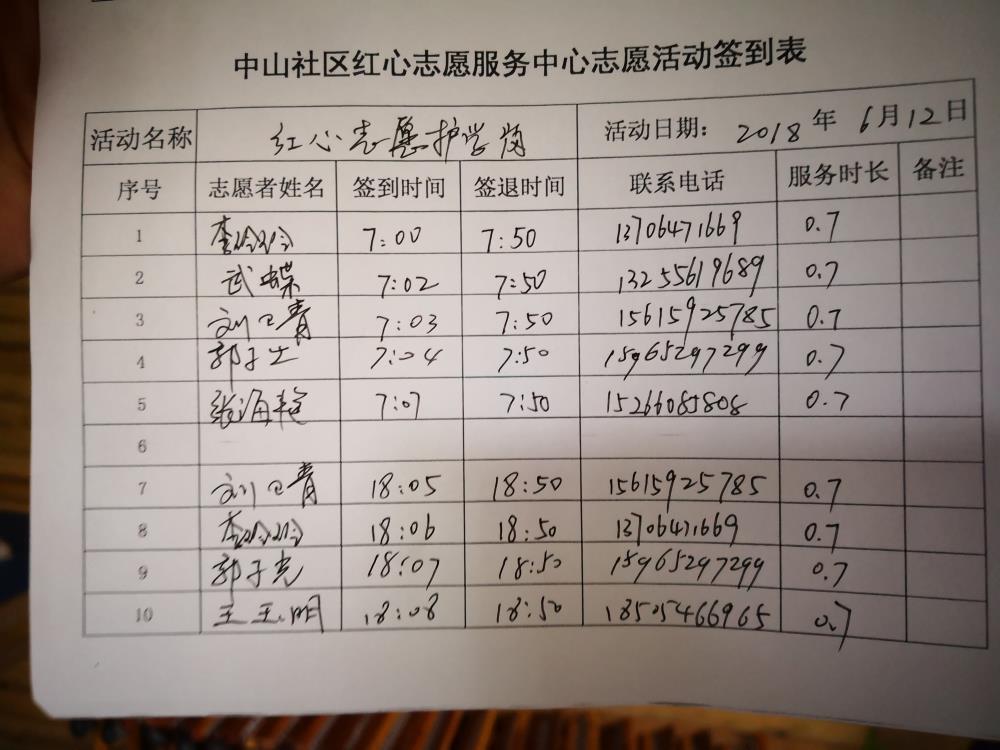 中山社区红心志愿服务中心志愿活动签到表
活动名称 红心志愿护学岗 活动日期: 2018 年 6月12日
序号 志愿者姓名 签到时间 签退时间 联系电话 服务时长 备注
1 李玲玲 7:00 7:50 13706471669 0.7
2 武蝶 7:02 7:50 13255619689 0.7
3 刘卫青 7:03 7:50 15615925785 0.7
4 7:04 7:50 15965297299 0.7
5 张海艳 7:07 7:50 15266085808 0.7
6
7 刘卫青 18:05 18:50 15615925785 0.7
8 李玲玲 18:06 18:50 13706471669 0.7
9 18:07 18:50 15965297299 0.7
10 王玉明 18:08 18:50 18505466965 0.7